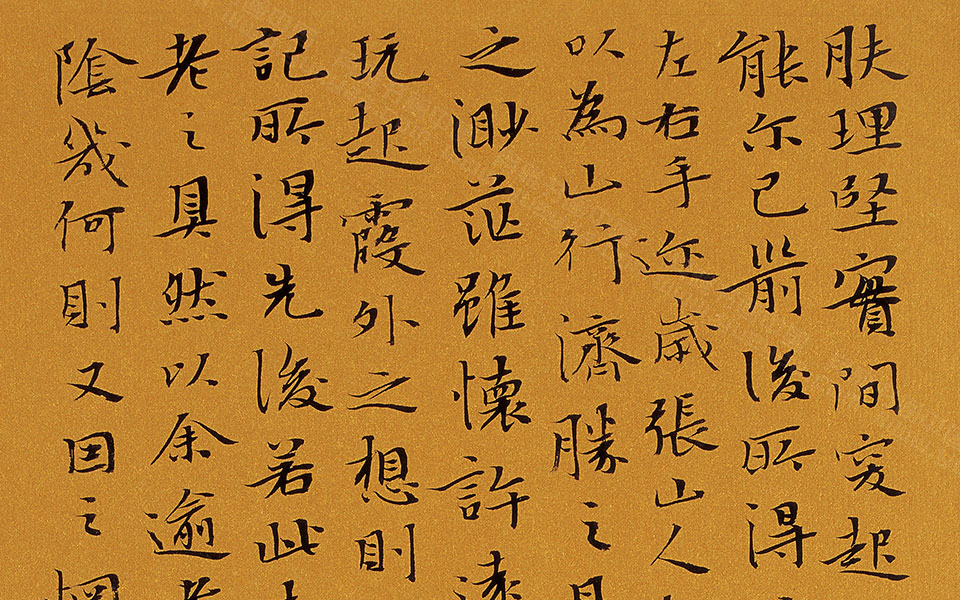 肤理坚實間突起
能尔已前後所得
左右手近歳張山人
以為山行濟勝之具
之渺茫雖懷許遠
玩起霞外之想則
記所得先後若此
老之具然以余逾老
陰幾何則又因之